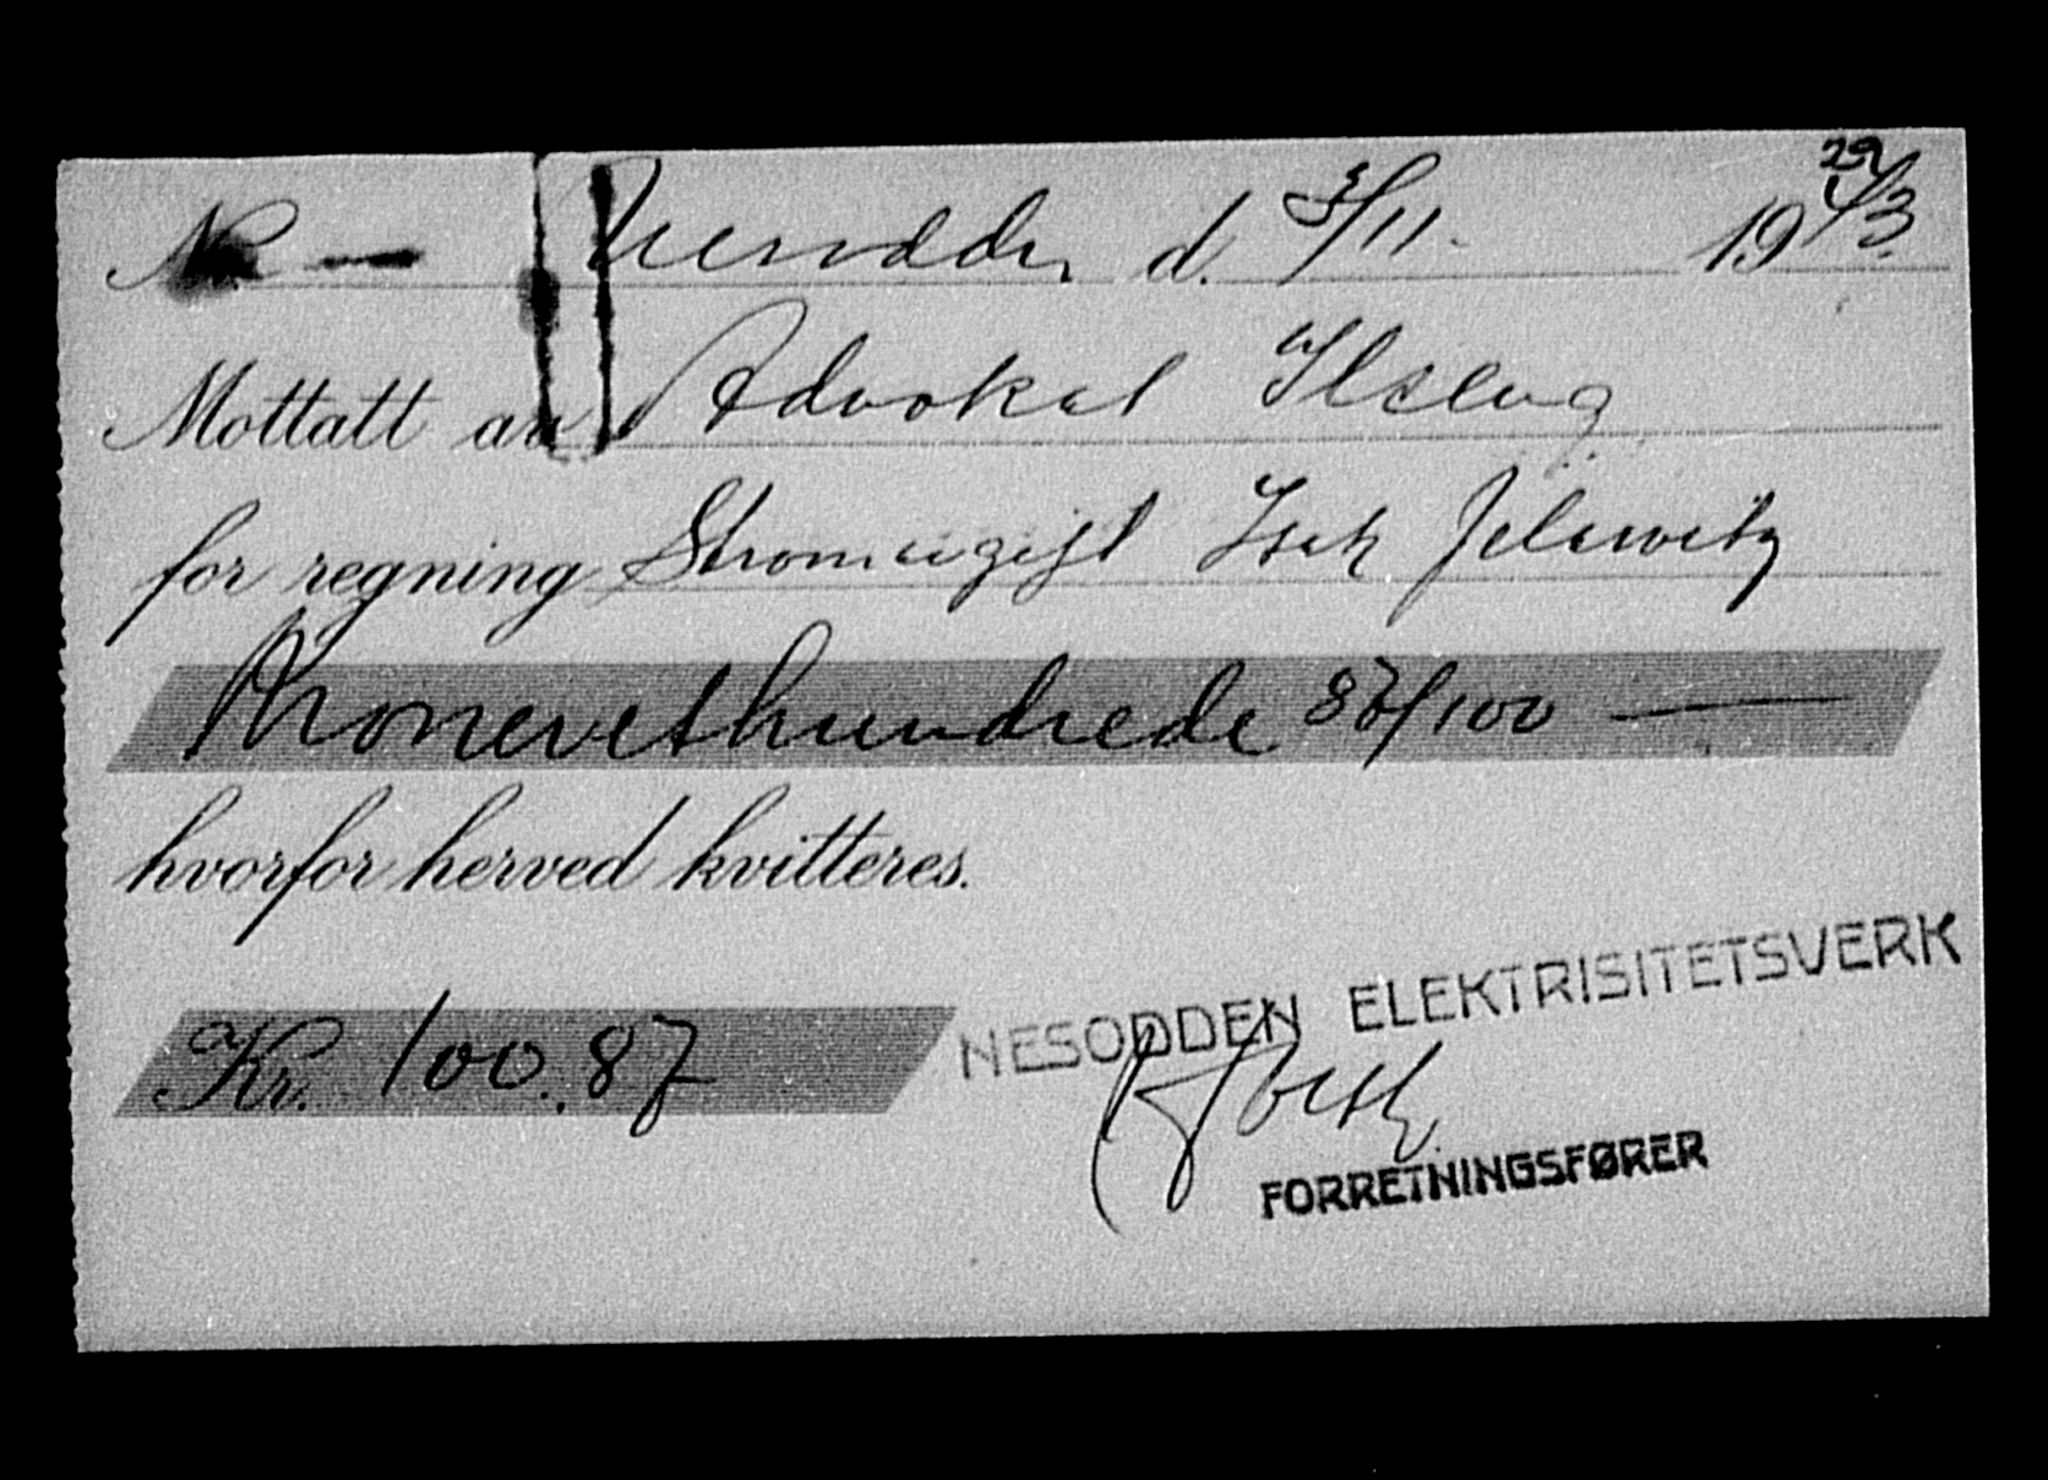 29
No — Nesodden d. 5/11. 1943.
Mottatt av Advokat Ilseng
for regning Stromavgift Isak Jelawitz
Kroneretthundrede 87/100 —
hvorfor herved kvitteres.
NESODDEN ELEKTRISITETSVERK
Kr. 100.87
FORRETNINGSFØRER